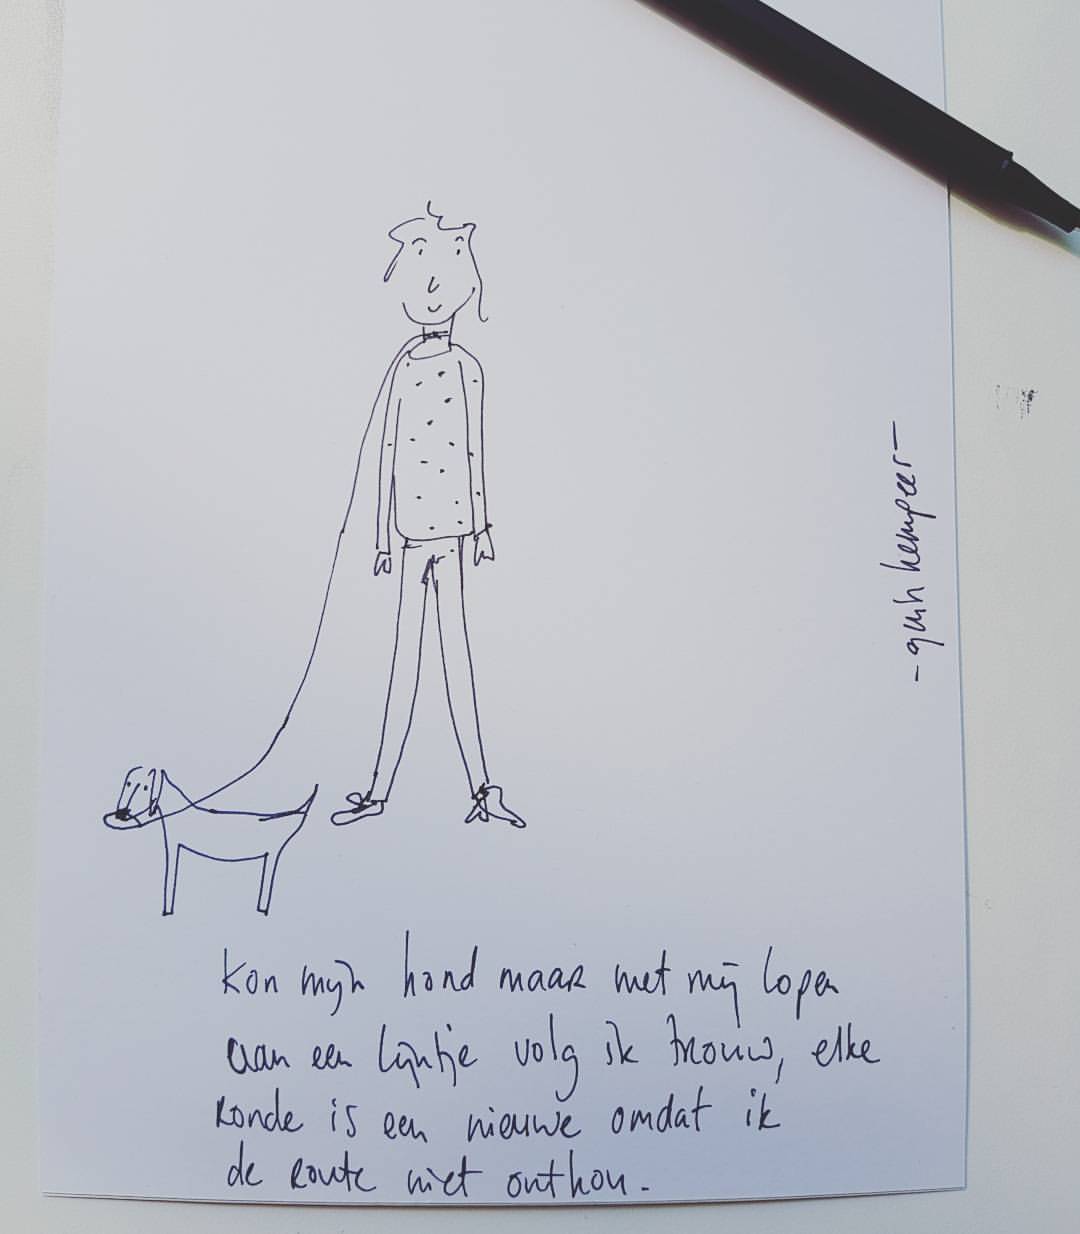 Kon mijn hond maar met mij lopen
aan een lijntje volg ik trouw, elke
ronde is een nieuwe omdat ik
de route niet onthou.